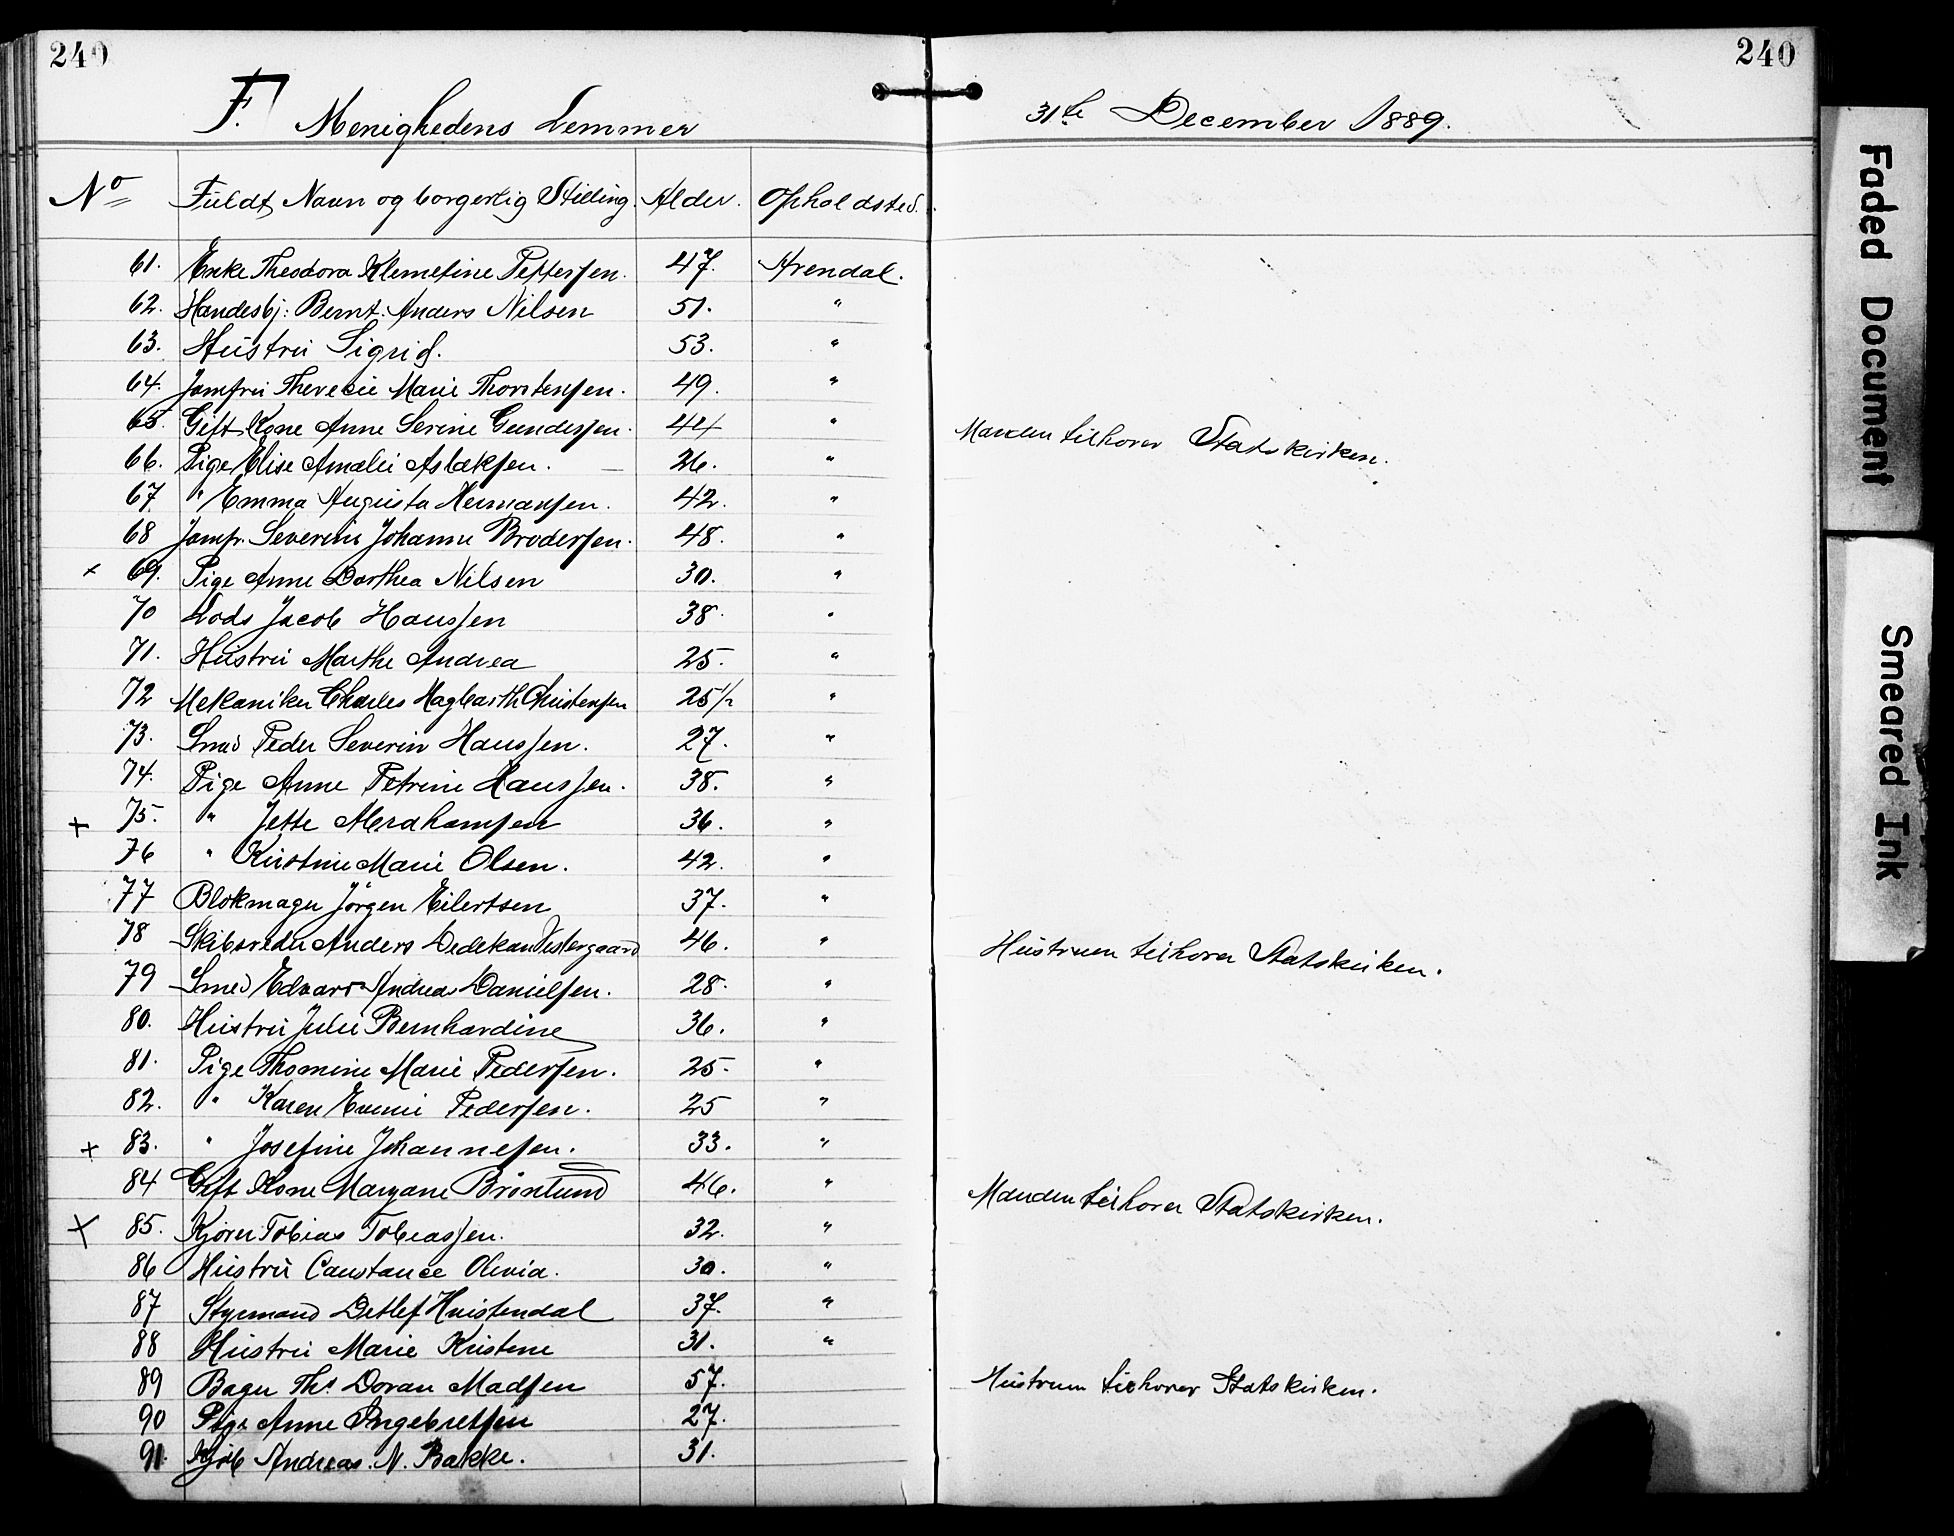 240
240
F. Menighedens Lemmer
31te December 1889.
No Fuldt Navn og borgerlig Stilling. Alder. Opholdsted.
61. Enke Theodora Klemetine Pettersen. 47. Arendal.
62. Handesbj: Bernt Anders Nilsen 51. "
63. Hustru Sigrid. 53. "
64. Jomfru Therecie Marie Thorstensen. 49. "
65. Gift Kone Anne Serine Gundersen. 44 " Manden tilhører Statskirken.
66. Pige Elise Amalie Aslaksen. 26. "
67 " Emma Augusta Hermansen. 42. "
68 Jomfr. Severine Johanne Brodersen. 48. "
× 69. Pige Anne Dorthea Nilsen 30. "
70 Lods Jacob Hanssen 38. "
71. Hustru Marthe Andrea 25. "
72 Mekaniker Charles Hagbarth Christensen 25 1/2 "
73. Smed Peder Severin Hanssen. 27. "
74. Pige Anne Petrine Hanssen. 38. "
+ 75. " Jette Abrahamsen 36. "
76 " Kirstine Marie Olsen. 42. "
77 Blokmager Jörgen Eilertsen 37. "
78 Skibsreder Anders Dedekam Vestergaard 46. " Hustruen tilhører Statskirken.
79 Smed Edvard Andreas Danielsen. 28. "
80. Hustru Julie Bernhardine 36. "
81. Pige Thomine Marie Pedersen. 25. "
82. " Karen Eveline Pedersen. 25 "
+ 83. " Josefine Johannesen. 33. "
84 Gift Kone Maryane Brönlund 46. " Manden tilhører Statskirken.
× 85. Kjører Tobias Tobiassen. 32. "
86 Hustru Constance Olivia. 30. "
87 Styrmand Detlef Huistendal 37. "
88 Hustru Marie Kristine 31. "
89 Bager Ths Doran Madsen 57. Hustruen tilhører Statskirken.
90 Pige Anne Ingebretsen 27.
91. Kjöb Andreas. N. Bakke. 31.
Faded Document
Smeared Ink